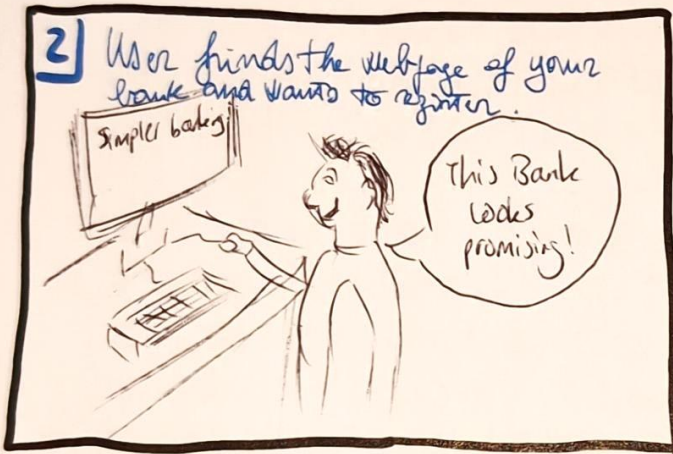 2
User finds the webpage of your
bank and wants to register.
Simpler banking!
This Bank
looks
promising!